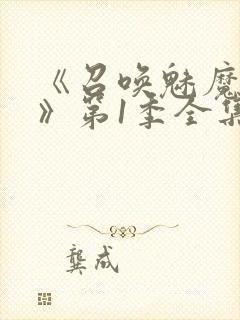 《召唤魅魔
》第1季全集
龚成